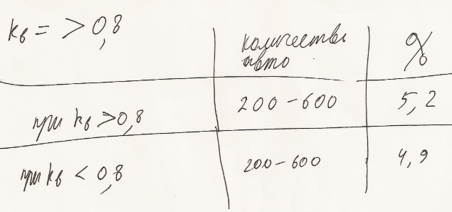 kв = > 0,8
количество авто %
при kв > 0,8 200 - 600 5,2
при kв < 0,8 200 - 600 4,9